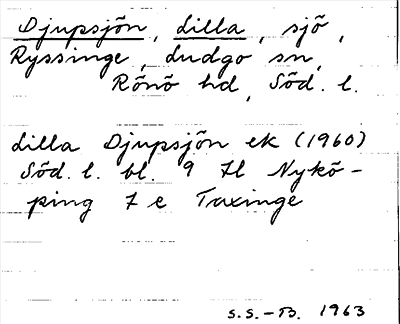 Djupsjön, Lilla, sjö,
Ryssinge, Ludgo sn,
Rönö hd, Söd. l.
Lilla Djupsjön ek (1960)
Söd. l. bl. 9 H Nykö-
ping 7 e Taxinge
S.S.-B. 1963